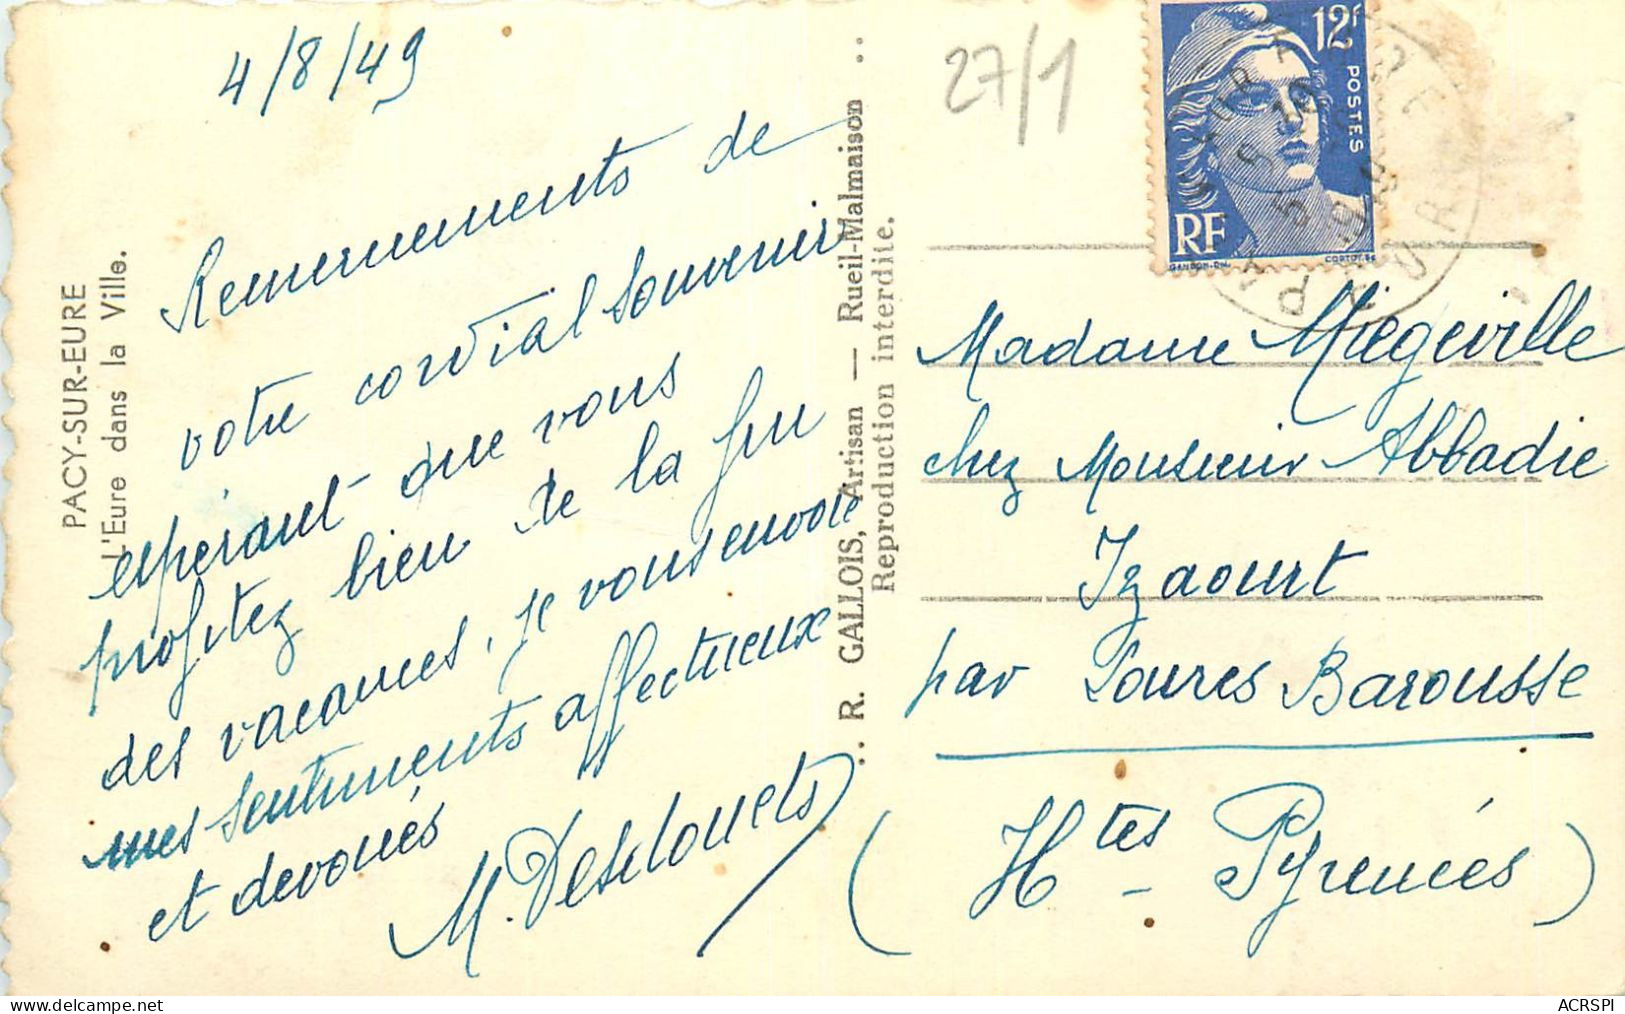 4/8/49
Remerciements de
votre cordial souvenir
espérant que vous
profitez bien de la fin
des vacances, je vous envoie
mes sentiments affectueux
et dévoués
PACY-SUR-EURE
L'Eure dans la Ville.
.. R. GALLOIS, Artisan — Rueil-Malmaison ..
Reproduction interdite.
27/1
12F
POSTES
RF
GANDON-DEL
Madame Miégeville
chez Monsieur Abbadie
Izaourt
par Loures Barousse
(Htes - Pyrénées)
ACRSPI